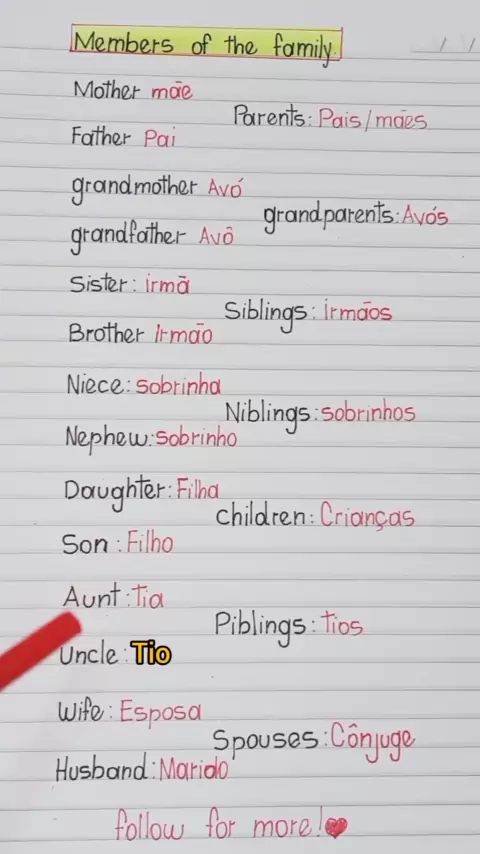 Members of the family.
Mother mãe
Parents: Pais/mães
Father Pai
grandmother Avó
grandparents: Avós
grandfather Avô
Sister: irmã
Siblings: irmãos
Brother Irmão
Niece: sobrinha
Niblings: sobrinhos
Nephew: sobrinho
Daughter: Filha
children: Crianças
Son: Filho
Aunt: Tia
Piblings: tios
Uncle: Tio
Wife: Esposa
Spouses: Cônjuge
Husband: Marido
follow for more!